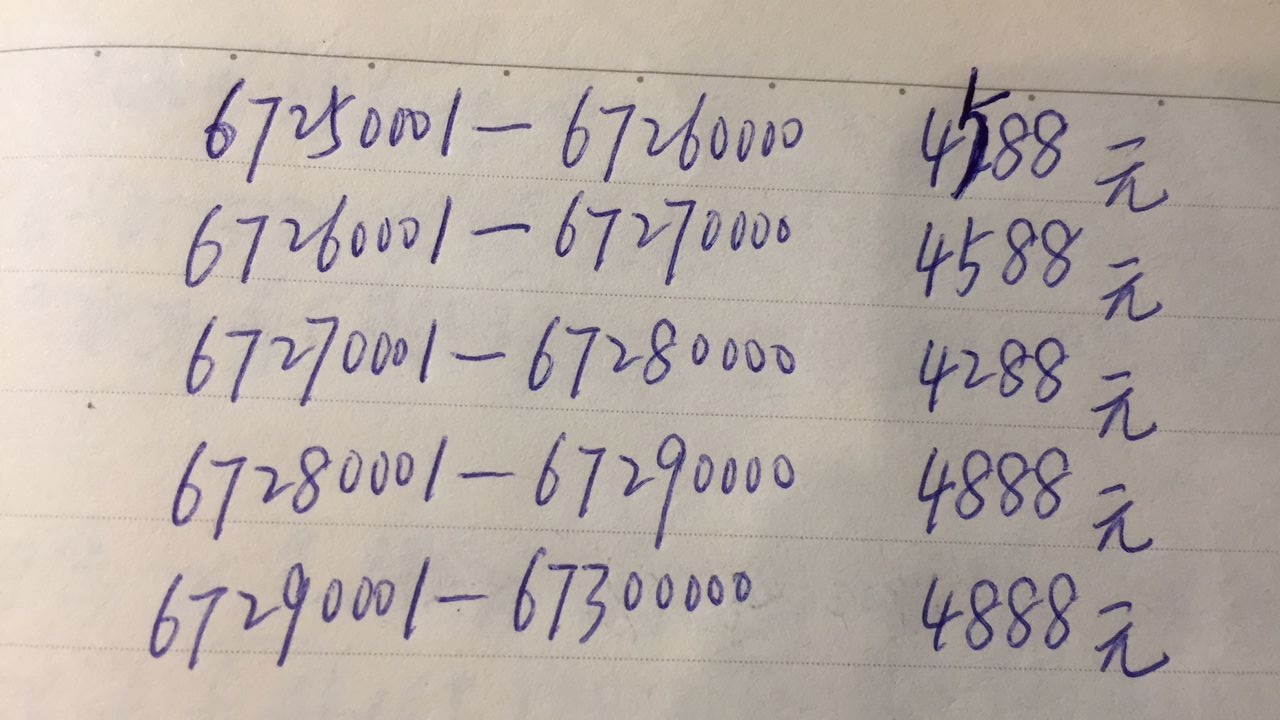 67250001—67260000 4588元
67260001—67270000 4588元
67270001—67280000 4288元
67280001—67290000 4888元
67290001—67300000 4888元